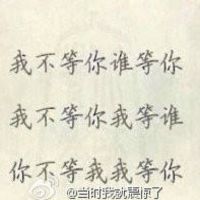 我不等你谁等你
我不等你我等谁
你不等我我等你
@当时我就震惊了